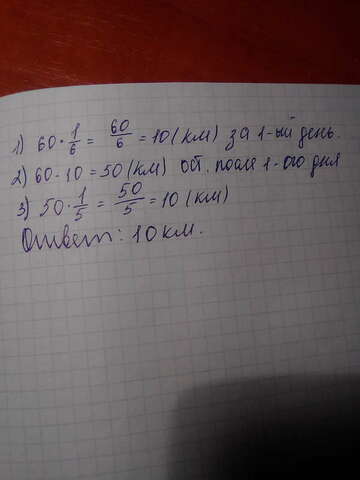 1) 60 · 1/6 = 60/6 = 10 (км) за 1-ый день.
2) 60 - 10 = 50 (км) ост. после 1-ого дня
3) 50 · 1/5 = 50/5 = 10 (км)
Ответ: 10 км.